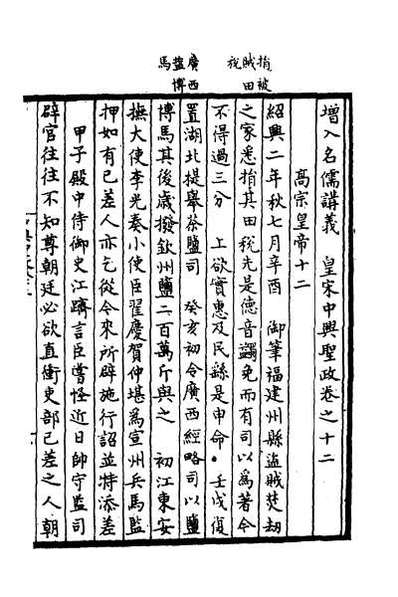 捐被
賊田
稅
廣西
鹽博
馬
增入名儒講義 皇宋中興聖政卷之十二
高宗皇帝十二
紹興二年秋七月辛酉 御筆福建州縣盜賊焚劫
之家悉捐其田稅先是德音蠲免而有司以爲著令
不得過三分 上欲實惠及民繇是申命•壬戌復
置湖北提舉茶鹽司 癸亥初令廣西經略司以鹽
博馬其後歲撥欽州鹽二百萬斤與之 初江東安
撫大使李光奏小使臣翟慶賀仲堪爲宣州兵馬監
押如有已差人亦乞從今來所辟施行詔並特添差
甲子殿中侍御史江躋言臣嘗怪近日帥守監司
辟官往往不知尊朝廷必欲直衝吏部已差之人朝